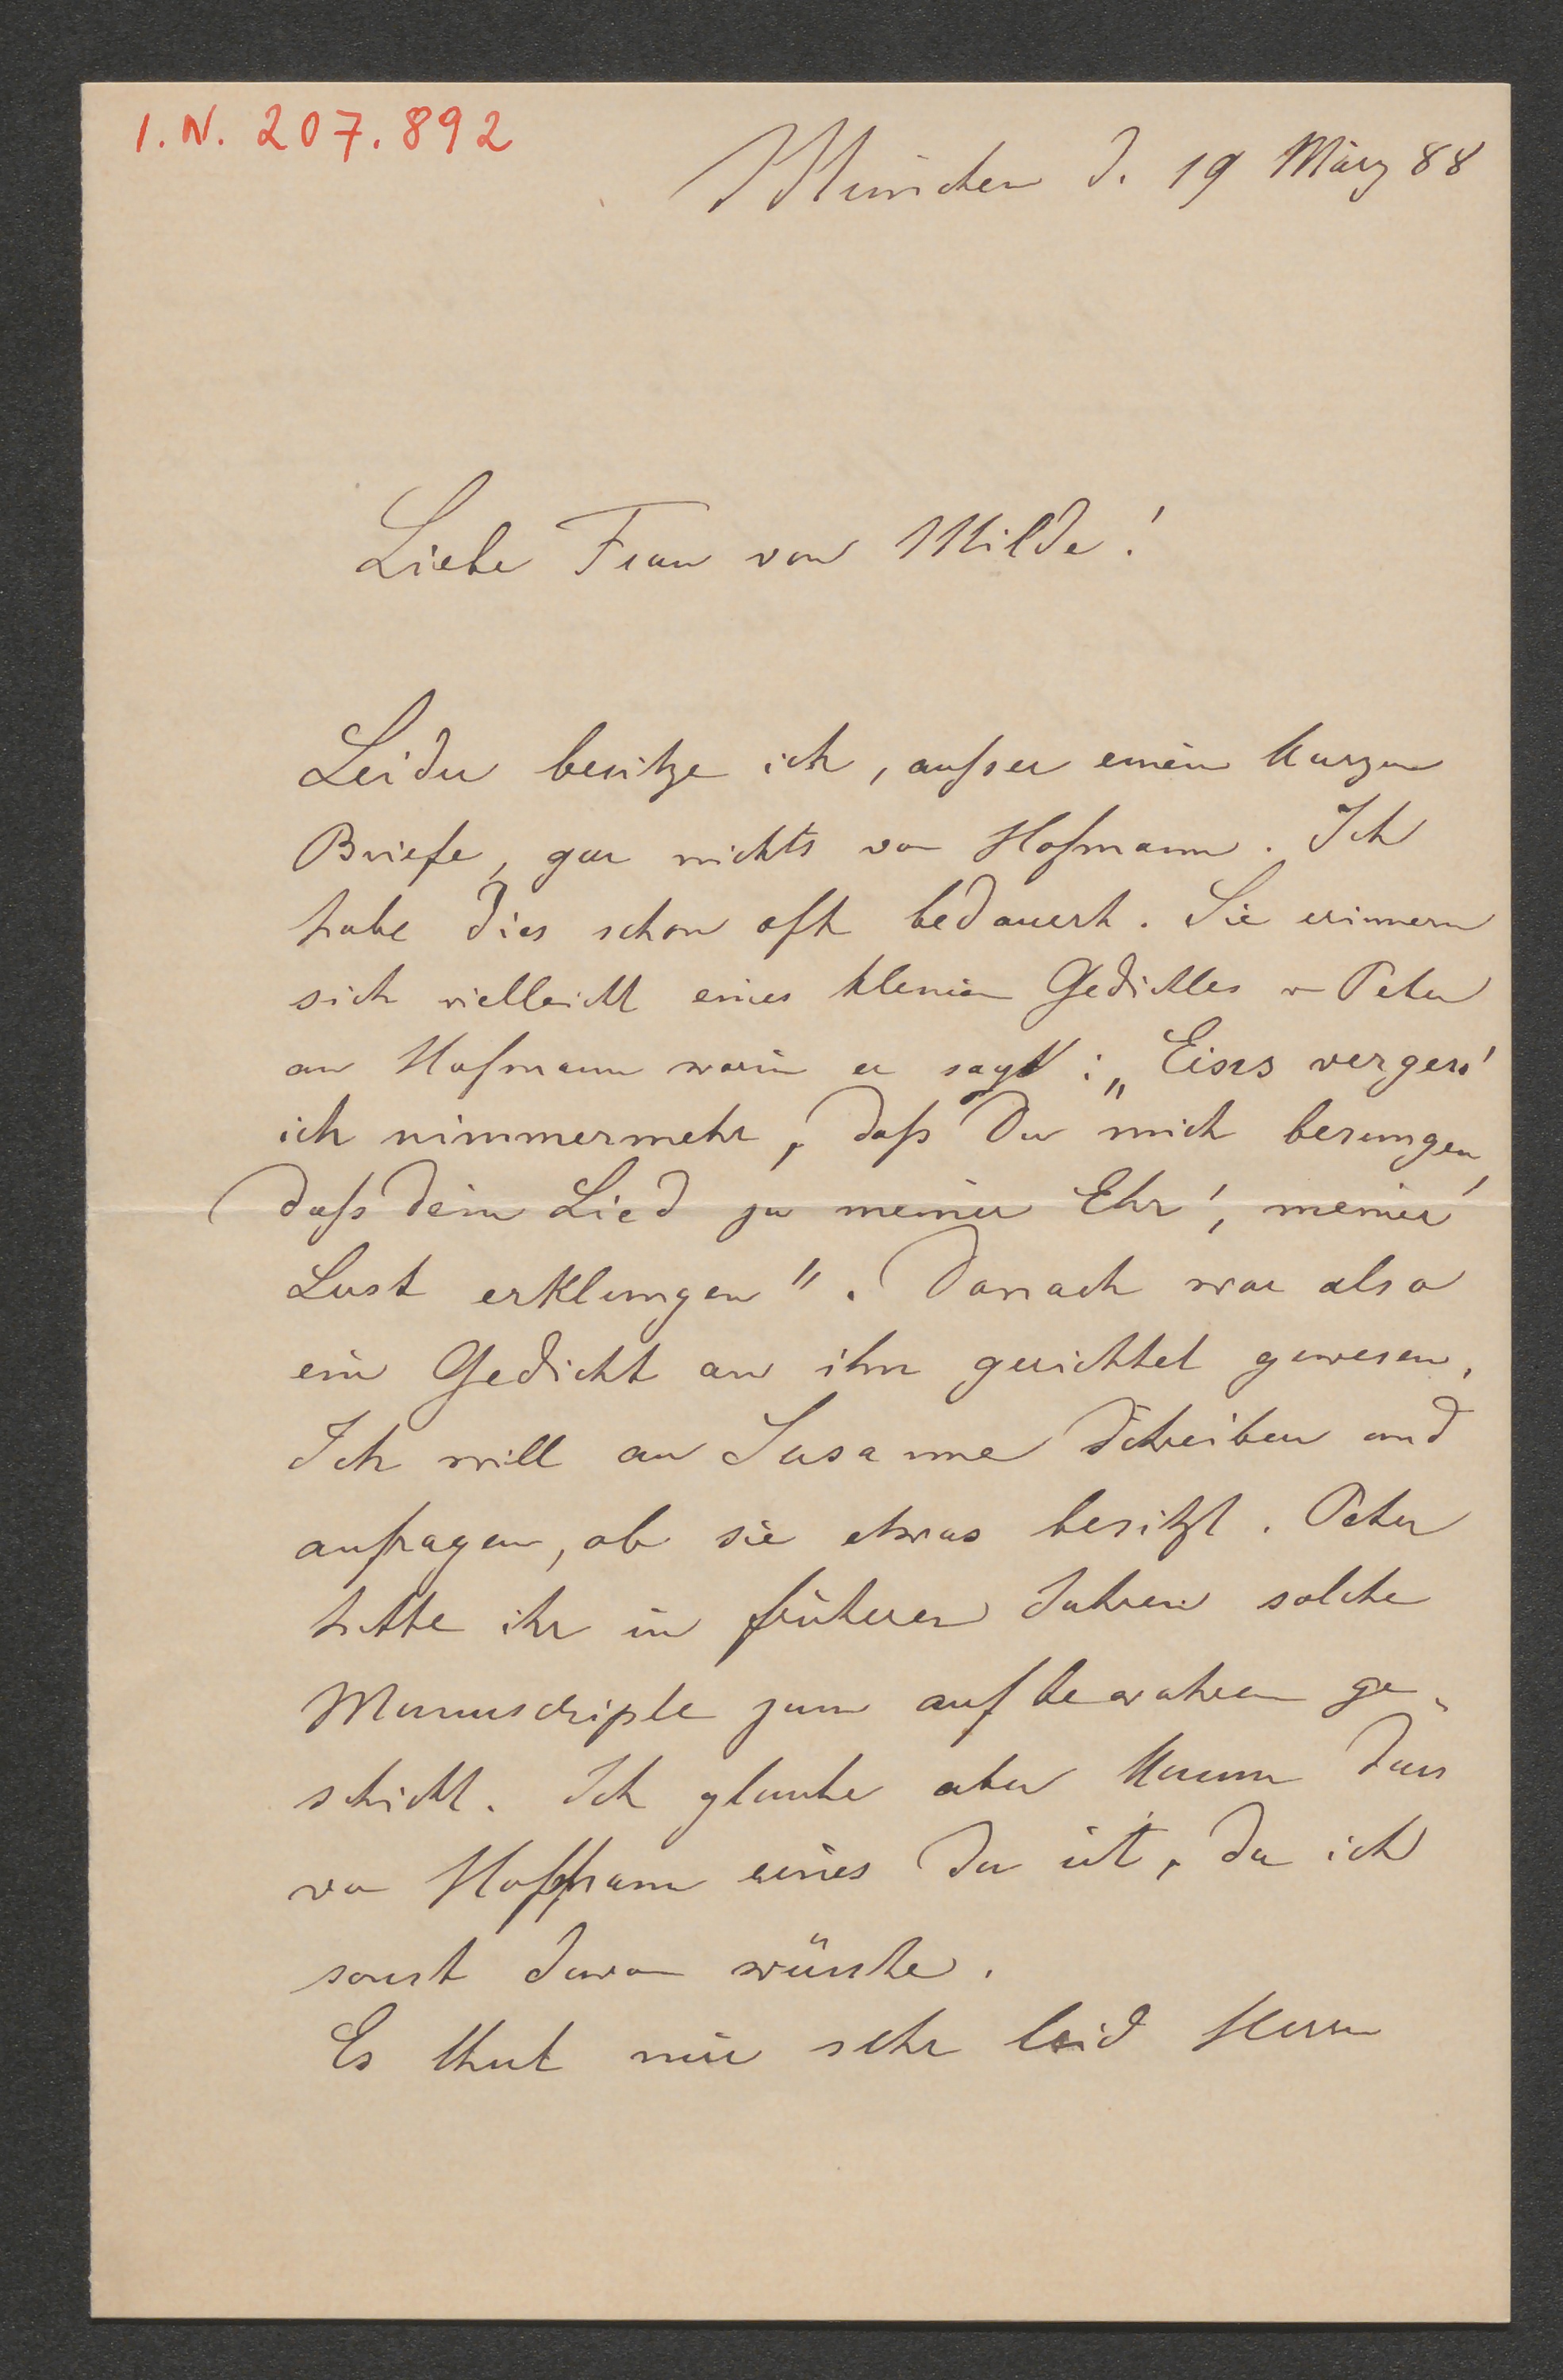 I.N. 207.892
München d. 19 März 88
Liebe Frau von Milde!
Leider besitze ich, außer einem kurzen
Briefe, gar nichts von Hofmann. Ich
habe dies schon oft bedauert. Sie erinnern
sich vielleicht eines kleinen Gedichtes v Peter
an Hofmann worin er sagt: „Eines vergess'
ich nimmermehr, daß Du mich besungen,
daß dein Lied zu meiner Ehr', meiner
Lust erklungen". Danach war also
ein Gedicht an ihn gerichtet gewesen.
Ich will an Susanne schreiben und
anfragen, ob sie etwas besitzt. Peter
hatte ihr in früheren Jahren solche
Manuscripte zum aufbewahren ge-
schickt. Ich glaube aber kaum dass
von Hoffmann eines da ist, da ich
sonst davon wüsste.
Es thut mir sehr leid Herrn